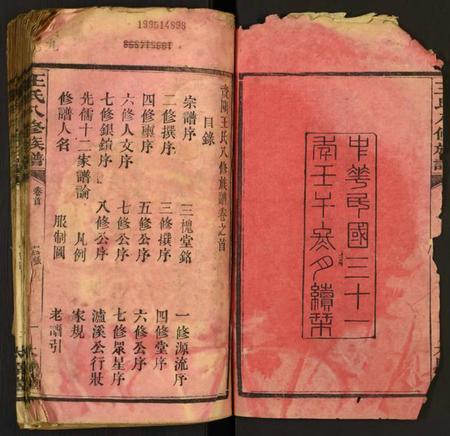 中華民國三十一
年壬午冬月續栞
王氏八修族譜
王氏八修族譜卷之首
目錄
宗譜序 三槐堂銘 一修源流序
二修撰序 三修撰序 四修堂序
四修序 五修公序 六修公序
六修人文序 七修公序 七修眾星序
七修銀鑽序 八修公序 瀘溪公行狀
先儒十二家譜論 凡例 家規
修譜人名 服制圖 老譜引
王氏八修族譜 卷首
199514893